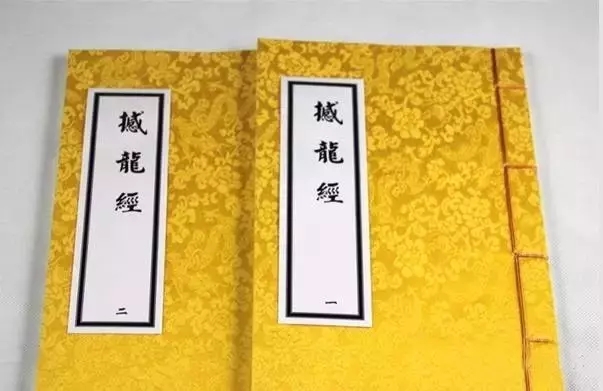 撼龍經
二
撼龍經
一